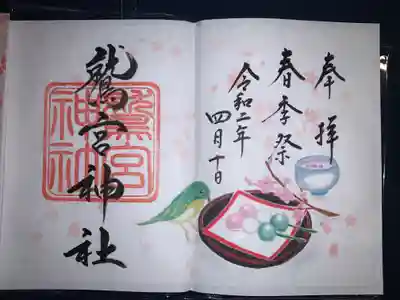 奉拝
春季祭
令和二年
四月十日
鷲宮神社
鷲宮
神社